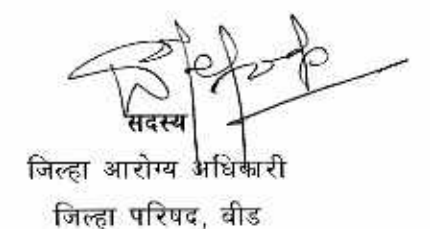 सदस्य
जिल्हा आरोग्य अधिकारी
जिल्हा परिषद, बीड